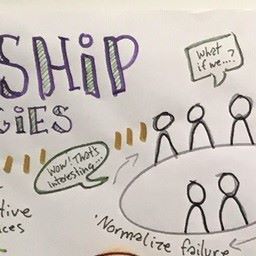 SHiP
GiES
What
if we...?
Wow! That's
interesting...
tive
ces
'Normalize failure